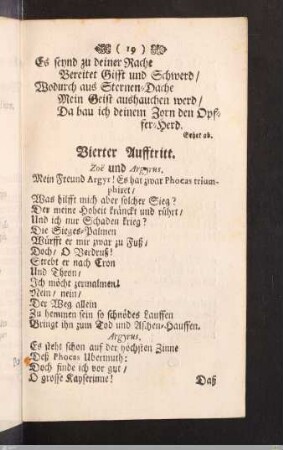 ( 19 )
Es seynd zu deiner Rache
Bereitet Gifft und Schwerd /
Wodurch aus Sternen-Dache
Mein Geist aushauchen werd /
Da bau ich deinem Zorn den Opf-
fer-Herd.
Gehet ab.
Vierter Aufftritt.
Zoë und Argyrus.
Mein Freund Argyr! Es hat zwar Phocas trium-
phiret /
Was hilfft mich aber solcher Sieg?
Der meine Hoheit kränckt und rührt /
Und ich nur Schaden krieg?
Die Sieges-Palmen
Würfft er mir zwar zu Fuß /
Doch / O Verdruß!
Strebt er nach Cron
Und Thron /
Ich möcht zermalmen!
Nein / nein /
Der Weg allein
Zu hemmen sein so schnödes Lauffen
Bringt ihn zum Tod und Aschen-Hauffen.
Argyrus.
Es steht schon auf der höchsten Zinne
Deß Phocas Ubermuth:
Doch finde ich vor gut /
O grosse Kayserinne!
Daß